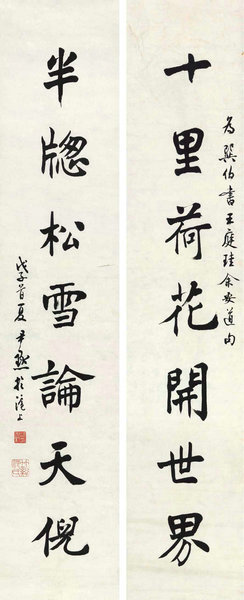 為巽伯書王庭珪余安道句
十里荷花開世界
半牕松雪論天倪
戊子首夏尹默於滬上